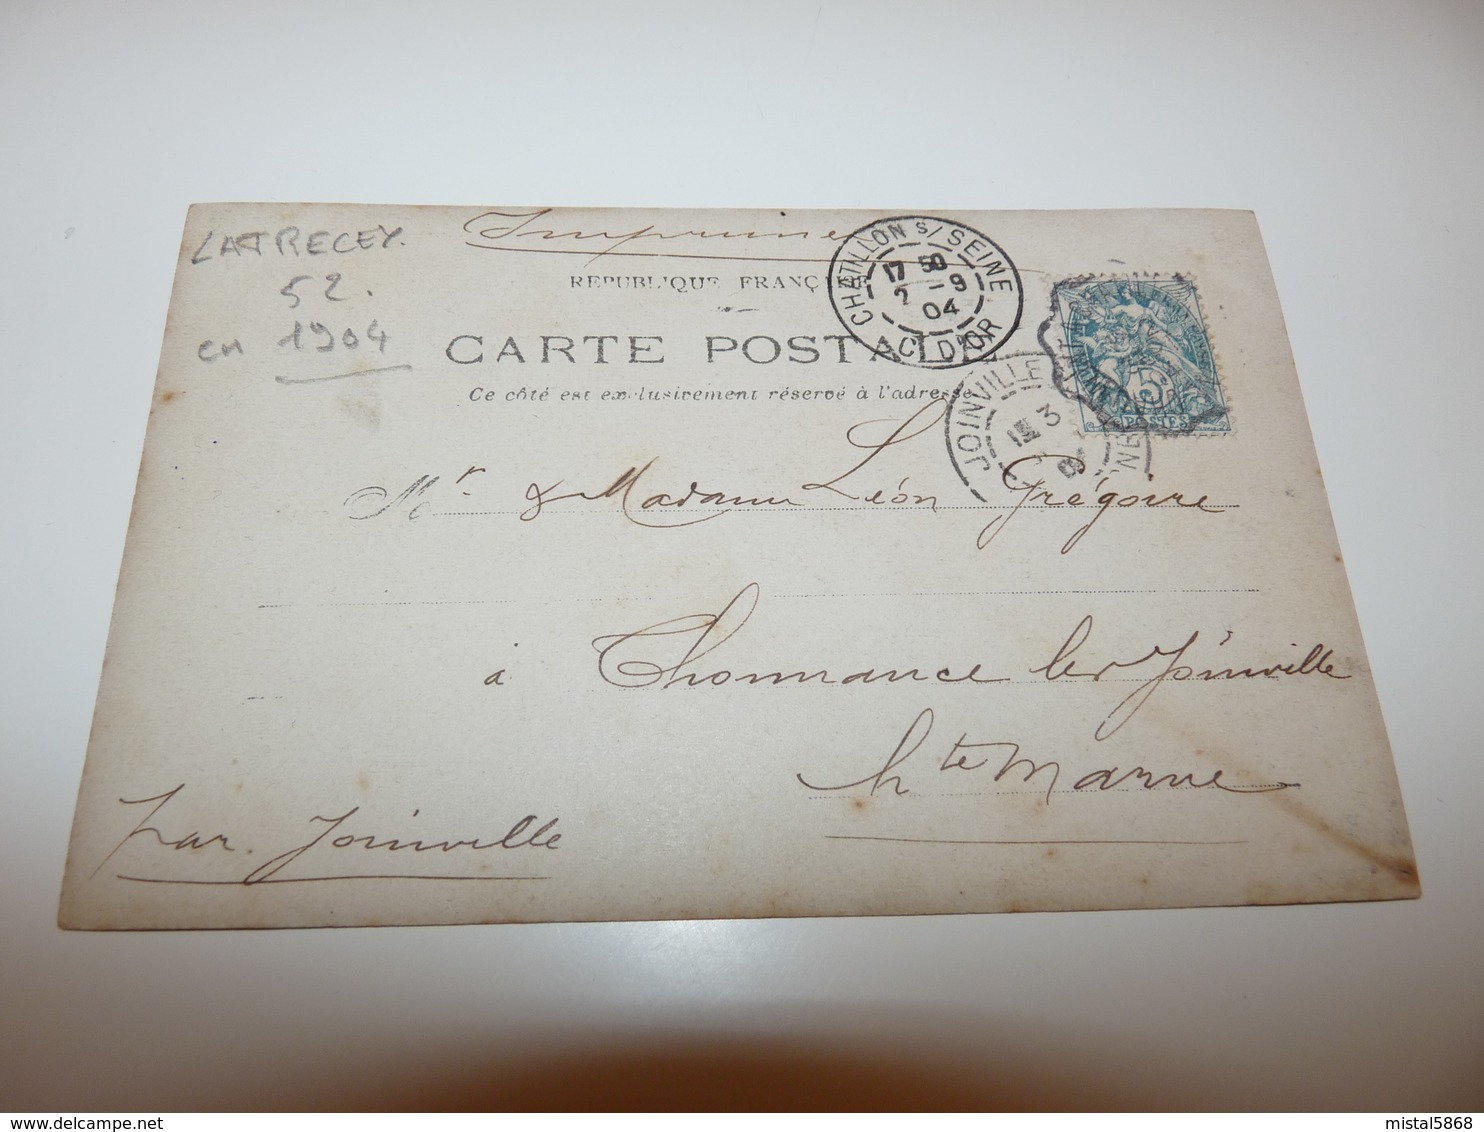 LATRECEY.
52.
en 1904
Imprimé
REPUBLIQUE FRANÇ
CARTE POSTALE
Ce côté est exclusivement réservé à l'adresse
CHATILLON S/SEINE
17 50
2 -9
04
C. D'OR
JOINVILLE
3
5c
POSTES
Mr & Madame Léon Grégoire
à Thonnance les Joinville
Hte Marne
par Joinville
delcampe.net
mistal5868